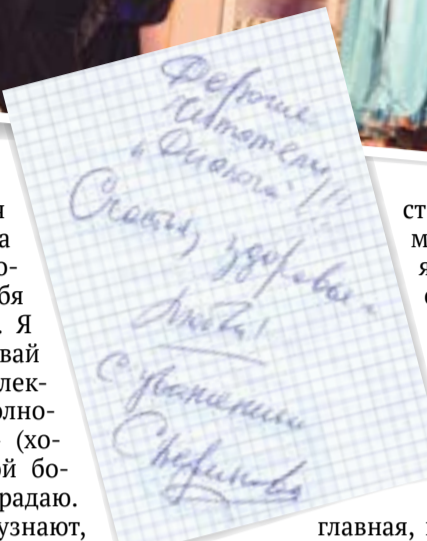 Дорогие
читатели
"Диалога"!!!
Счастья, здоровья
Любви!
С уважением
я
а
о-
бя
. Я
вай
лек-
олно-
(хо-
й бо-
радаю.
узнают,
ст
м
я
главная,